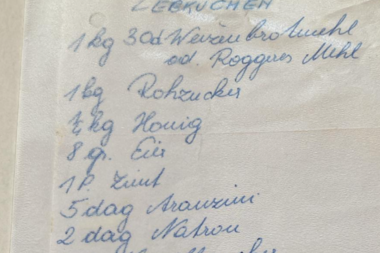 LEBKUCHEN
1 kg 30d Weizenbrotmehl
od. Roggnes Mehl
1 kg Rohzucker
1/4 kg Honig
8 gr. Eier
1 P. Zimt
5 dag Aranzini
2 dag Natron